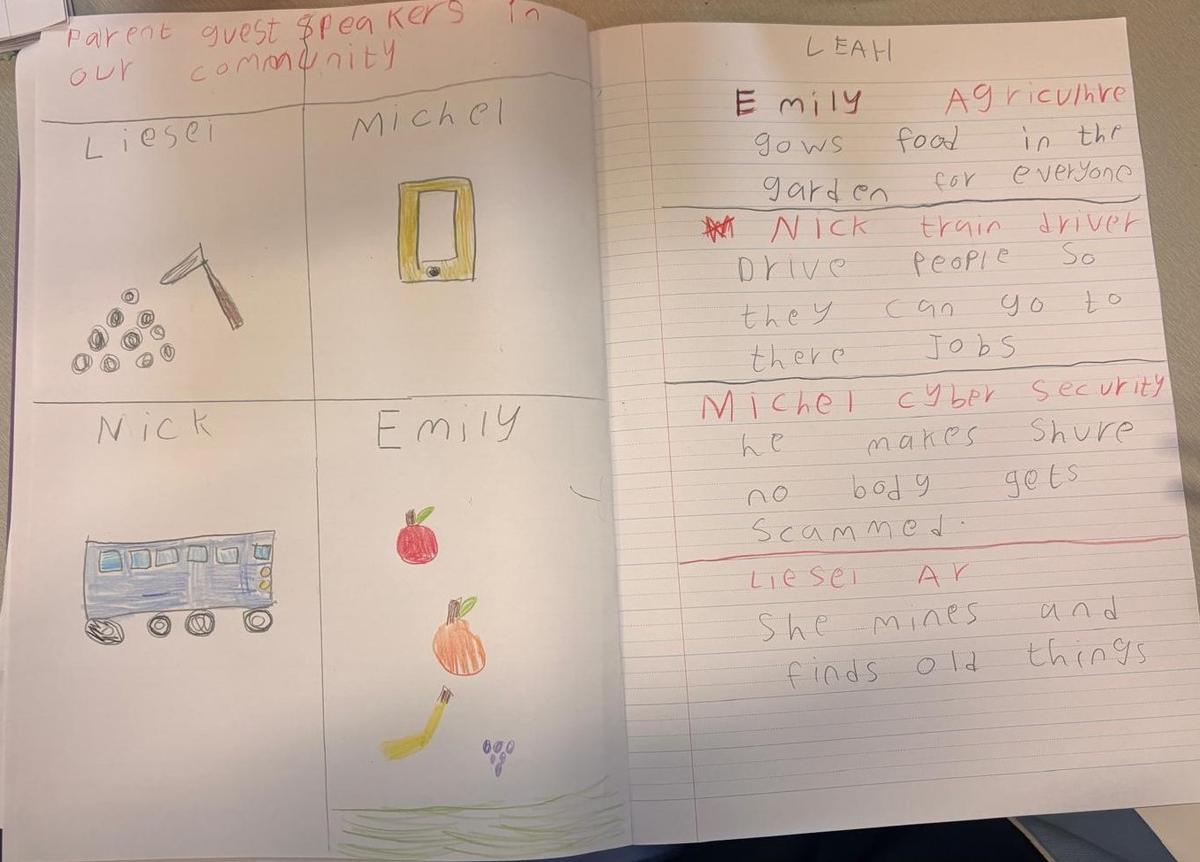 Parent guest speakers in
our community
Liesei
Michel
Nick
Emily
LEAH
Emily Agriculhre
gows food in the
garden for everyone
Nick train driver
Drive people so
they can go to
there Jobs
Michel cyber security
he makes shure
no body gets
scammed.
Liesei Ar
She mines and
finds old things